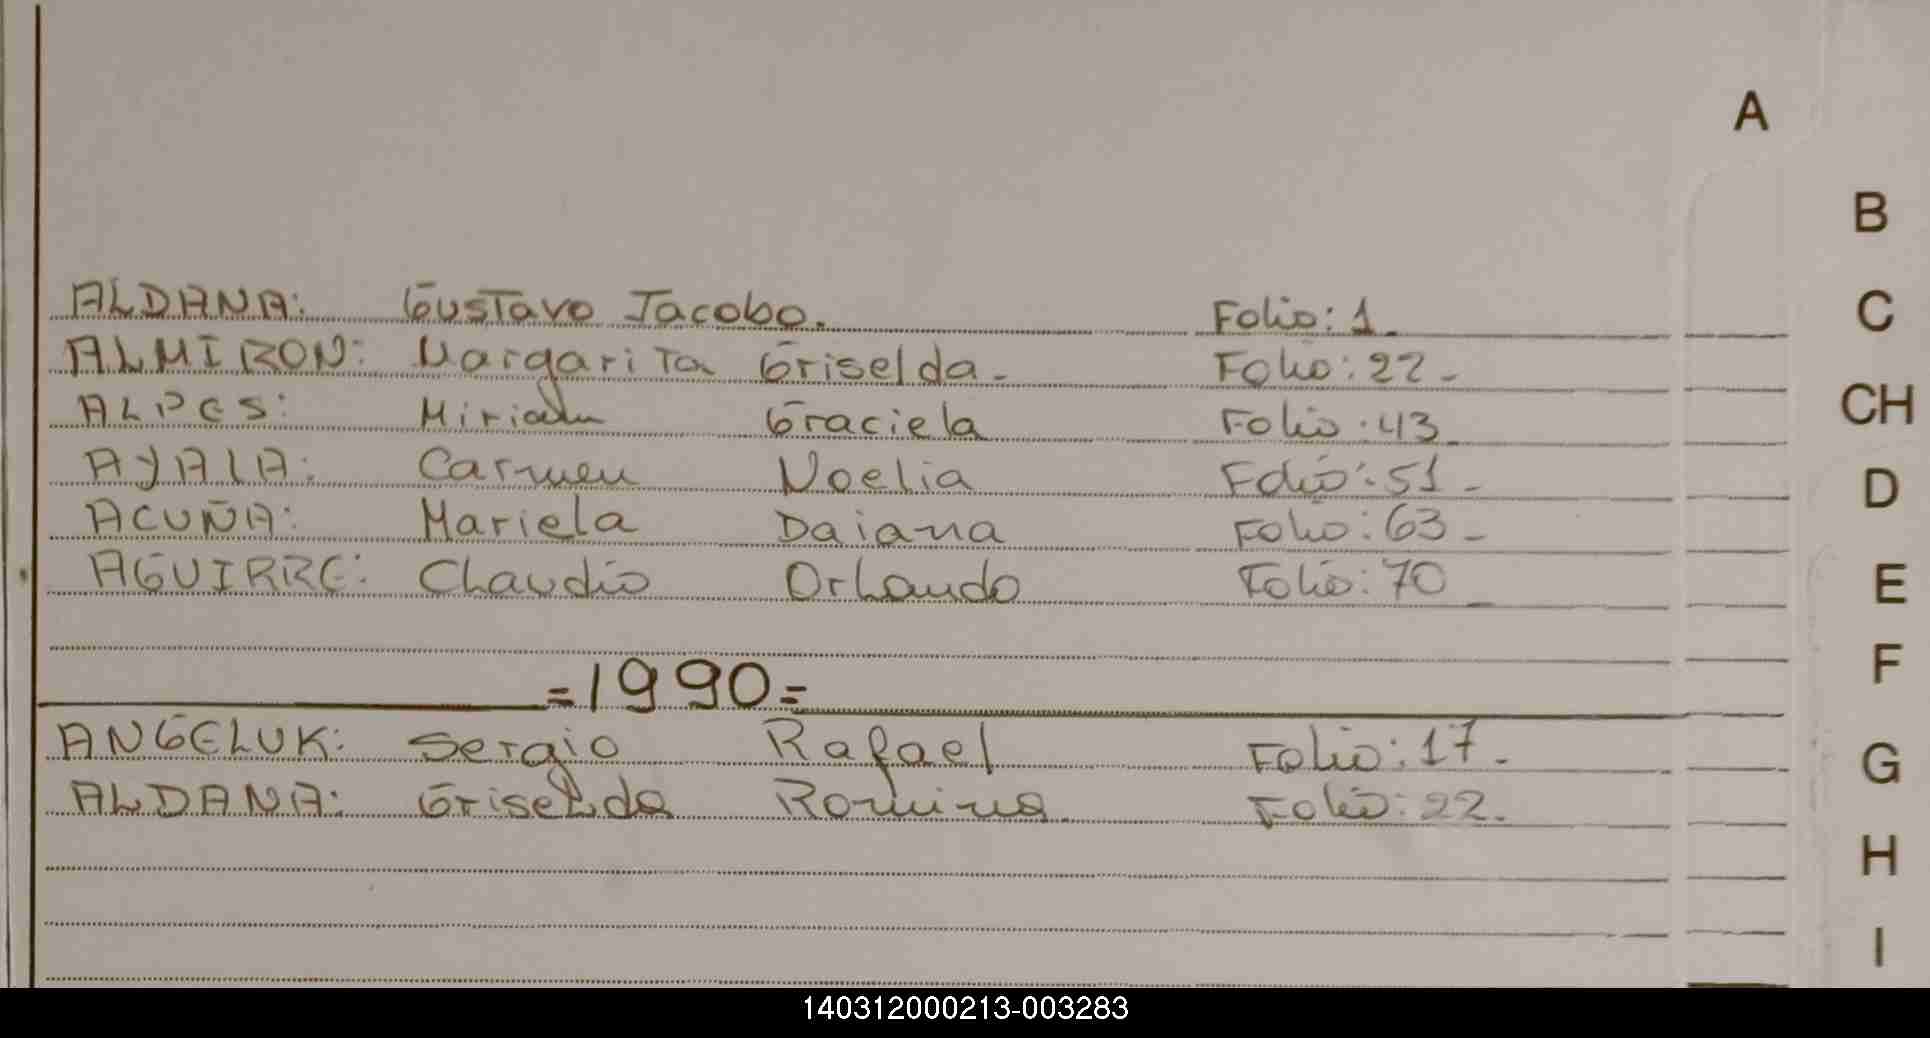 A
B
C
CH
D
E
F
G
H
I
ALDANA: Gustavo Jacobo. Folio: 1.
ALMIRON: Margarita Griselda. Folio: 22-
ALPES: Miriam Graciela Folio: 43
AYALA: Carmen Noelia Folio: 51-
ACUÑA: Mariela Daiana Folio: 63-
AGUIRRE: Claudio Orlando Folio: 70
=1990=
ANGELUK: Sergio Rafael Folio: 17.
ALDANA: Griselda Romina Folio: 22.
140312000213-003283